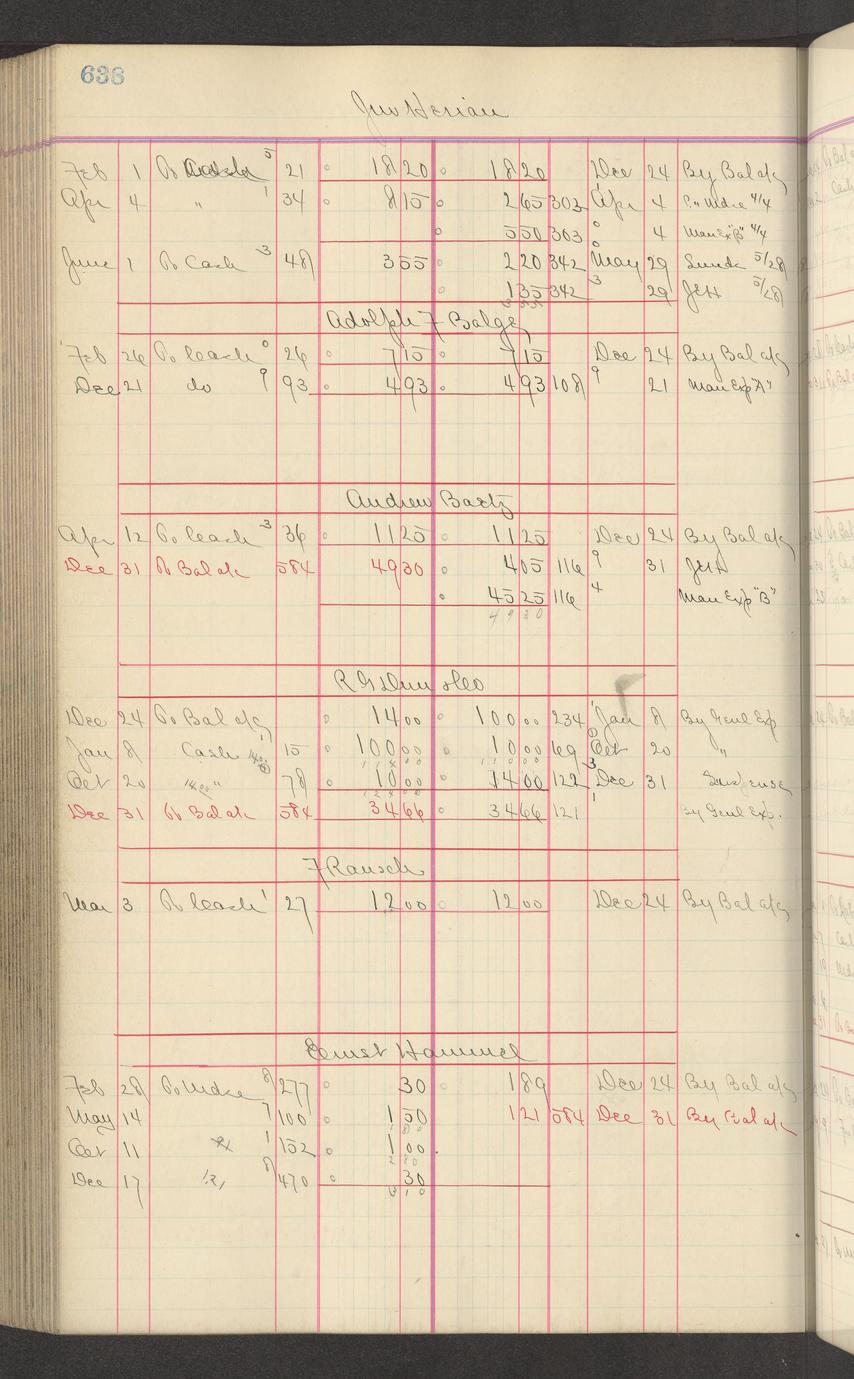 638
Jno Herian
Feb 1 To Cash 5 21 18 20 18 20 Dec 24 By Bal a/c
Apr 4 " 1 34 8 15 2 65 303 1 Apr 4 " Mdse 4/4
5 50 303 0 4 Man Ex "B" 4/4
June 1 To Cash 3 48 3 55 2 20 342 0 May 29 5/28
1 35 342 3 29 J&H 5/28
3 55
Adolph F Balge
Feb 26 To Cash 0 26 7 15 7 15 Dec 24 By Bal a/c
Dec 21 do 9 93 4 93 4 93 108 9 21 Man Exp "A"
Andrew Bartz
Apr 12 To Cash 3 36 11 25 11 25 Dec 24 By Bal a/c
Dec 31 To Bal a/c 584 49 30 4 05 116 9 31 J&H
45 25 116 4 Man Exp "B"
49 30
R G Dun & Co
Dec 24 To Bal a/c 14 00 100 00 234 1 Jan 8 By Genl Exp
Jan 8 Cash 1 15 100 00 10 00 69 0 Oct 20 "
114 00 110 00
Oct 20 14.00 " 78 10 00 14 00 122 3 Dec 31 Suspense
124 00
Dec 31 To Bal a/c 584 34 66 34 66 121 1 By Genl Exp.
F Rausch
Mar 3 To Cash 1 27 12 00 12 00 Dec 24 By Bal a/c
Ernst Hammel
Feb 28 To Mdse 8 277 30 1 89 Dec 24 By Bal a/c
May 14 7 100 1 50 1 21 584 Dec 31 By Bal a/c
1 80
Oct 11 1 152 1 00
2 80
Dec 17 8 470 30
3 10